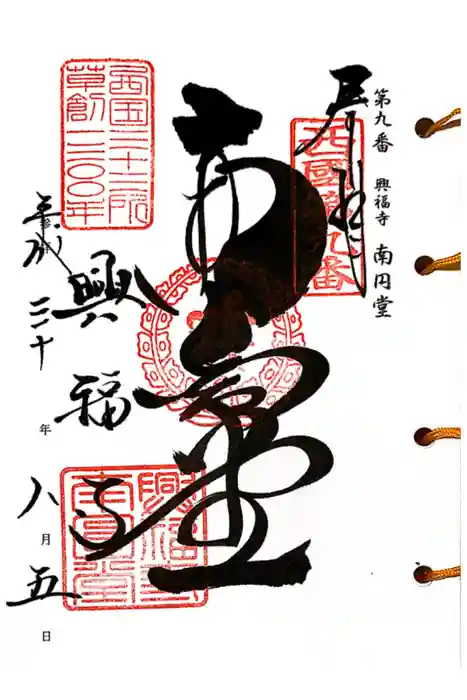 第九番 興福寺 南円堂
奉拝
西國第九番
南円堂
西国三十三所
草創一三〇〇年
興福寺
興福寺
南圓堂
平成三十年八月五日